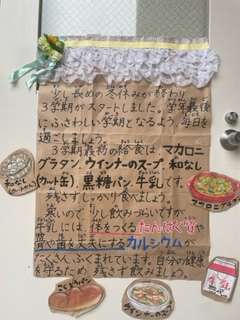 少し長めの冬休みが終わり
3学期がスタートしました。学年最後
にふさわしい学期となるよう、毎日を
過ごしましょう。
3学期最初の給食は、マカロニ
グラタン、ウインナーのスープ、和なし
(カット缶)、黒糖パン、牛乳です。
残さずしっかり食べましょう。
寒いので少し飲みづらいですが、
牛乳には、体をつくるたんぱく質や
骨や歯を丈夫にするカルシウムが
たくさんふくまれています。自分の健康
を守るため、残さず飲みましょう。
和なし
マカロニグラタン
こくとうパン
牛乳